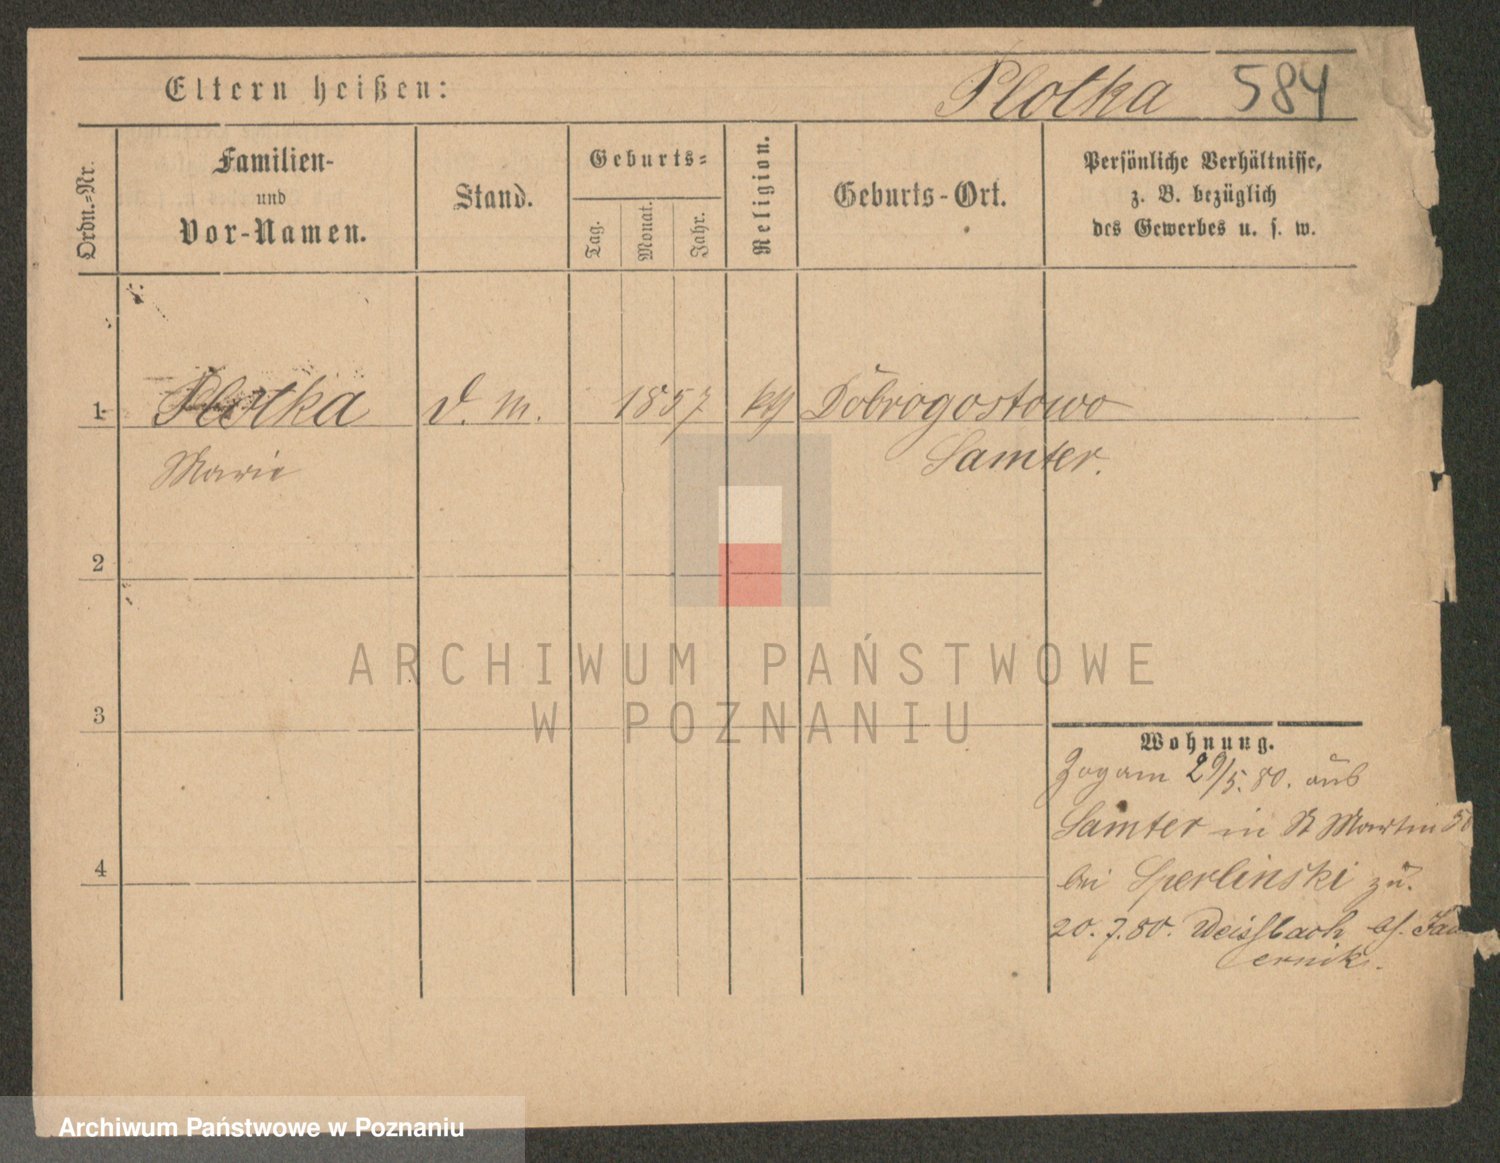 Eltern heißen:
Plotka 584
Ordn.-Nr.
Familien-
und
Vor-Namen.
Stand.
Geburts-
Tag.
Monat.
Jahr.
Religion.
Geburts-Ort.
Persönliche Verhältnisse,
z. B. bezüglich
des Gewerbes u. s. w.
1 Plotka d. m. 1857 kth Dobrogostowo
Marie Samter.
2
3
4
Wohnung.
Zog am 29/5. 80. aus
Samter in St Martin
bei Sperlinski zu.
20. 7. 80. Weissbach
ernik.
ARCHIWUM PAŃSTWOWE
W POZNANIU
Archiwum Państwowe w Poznaniu